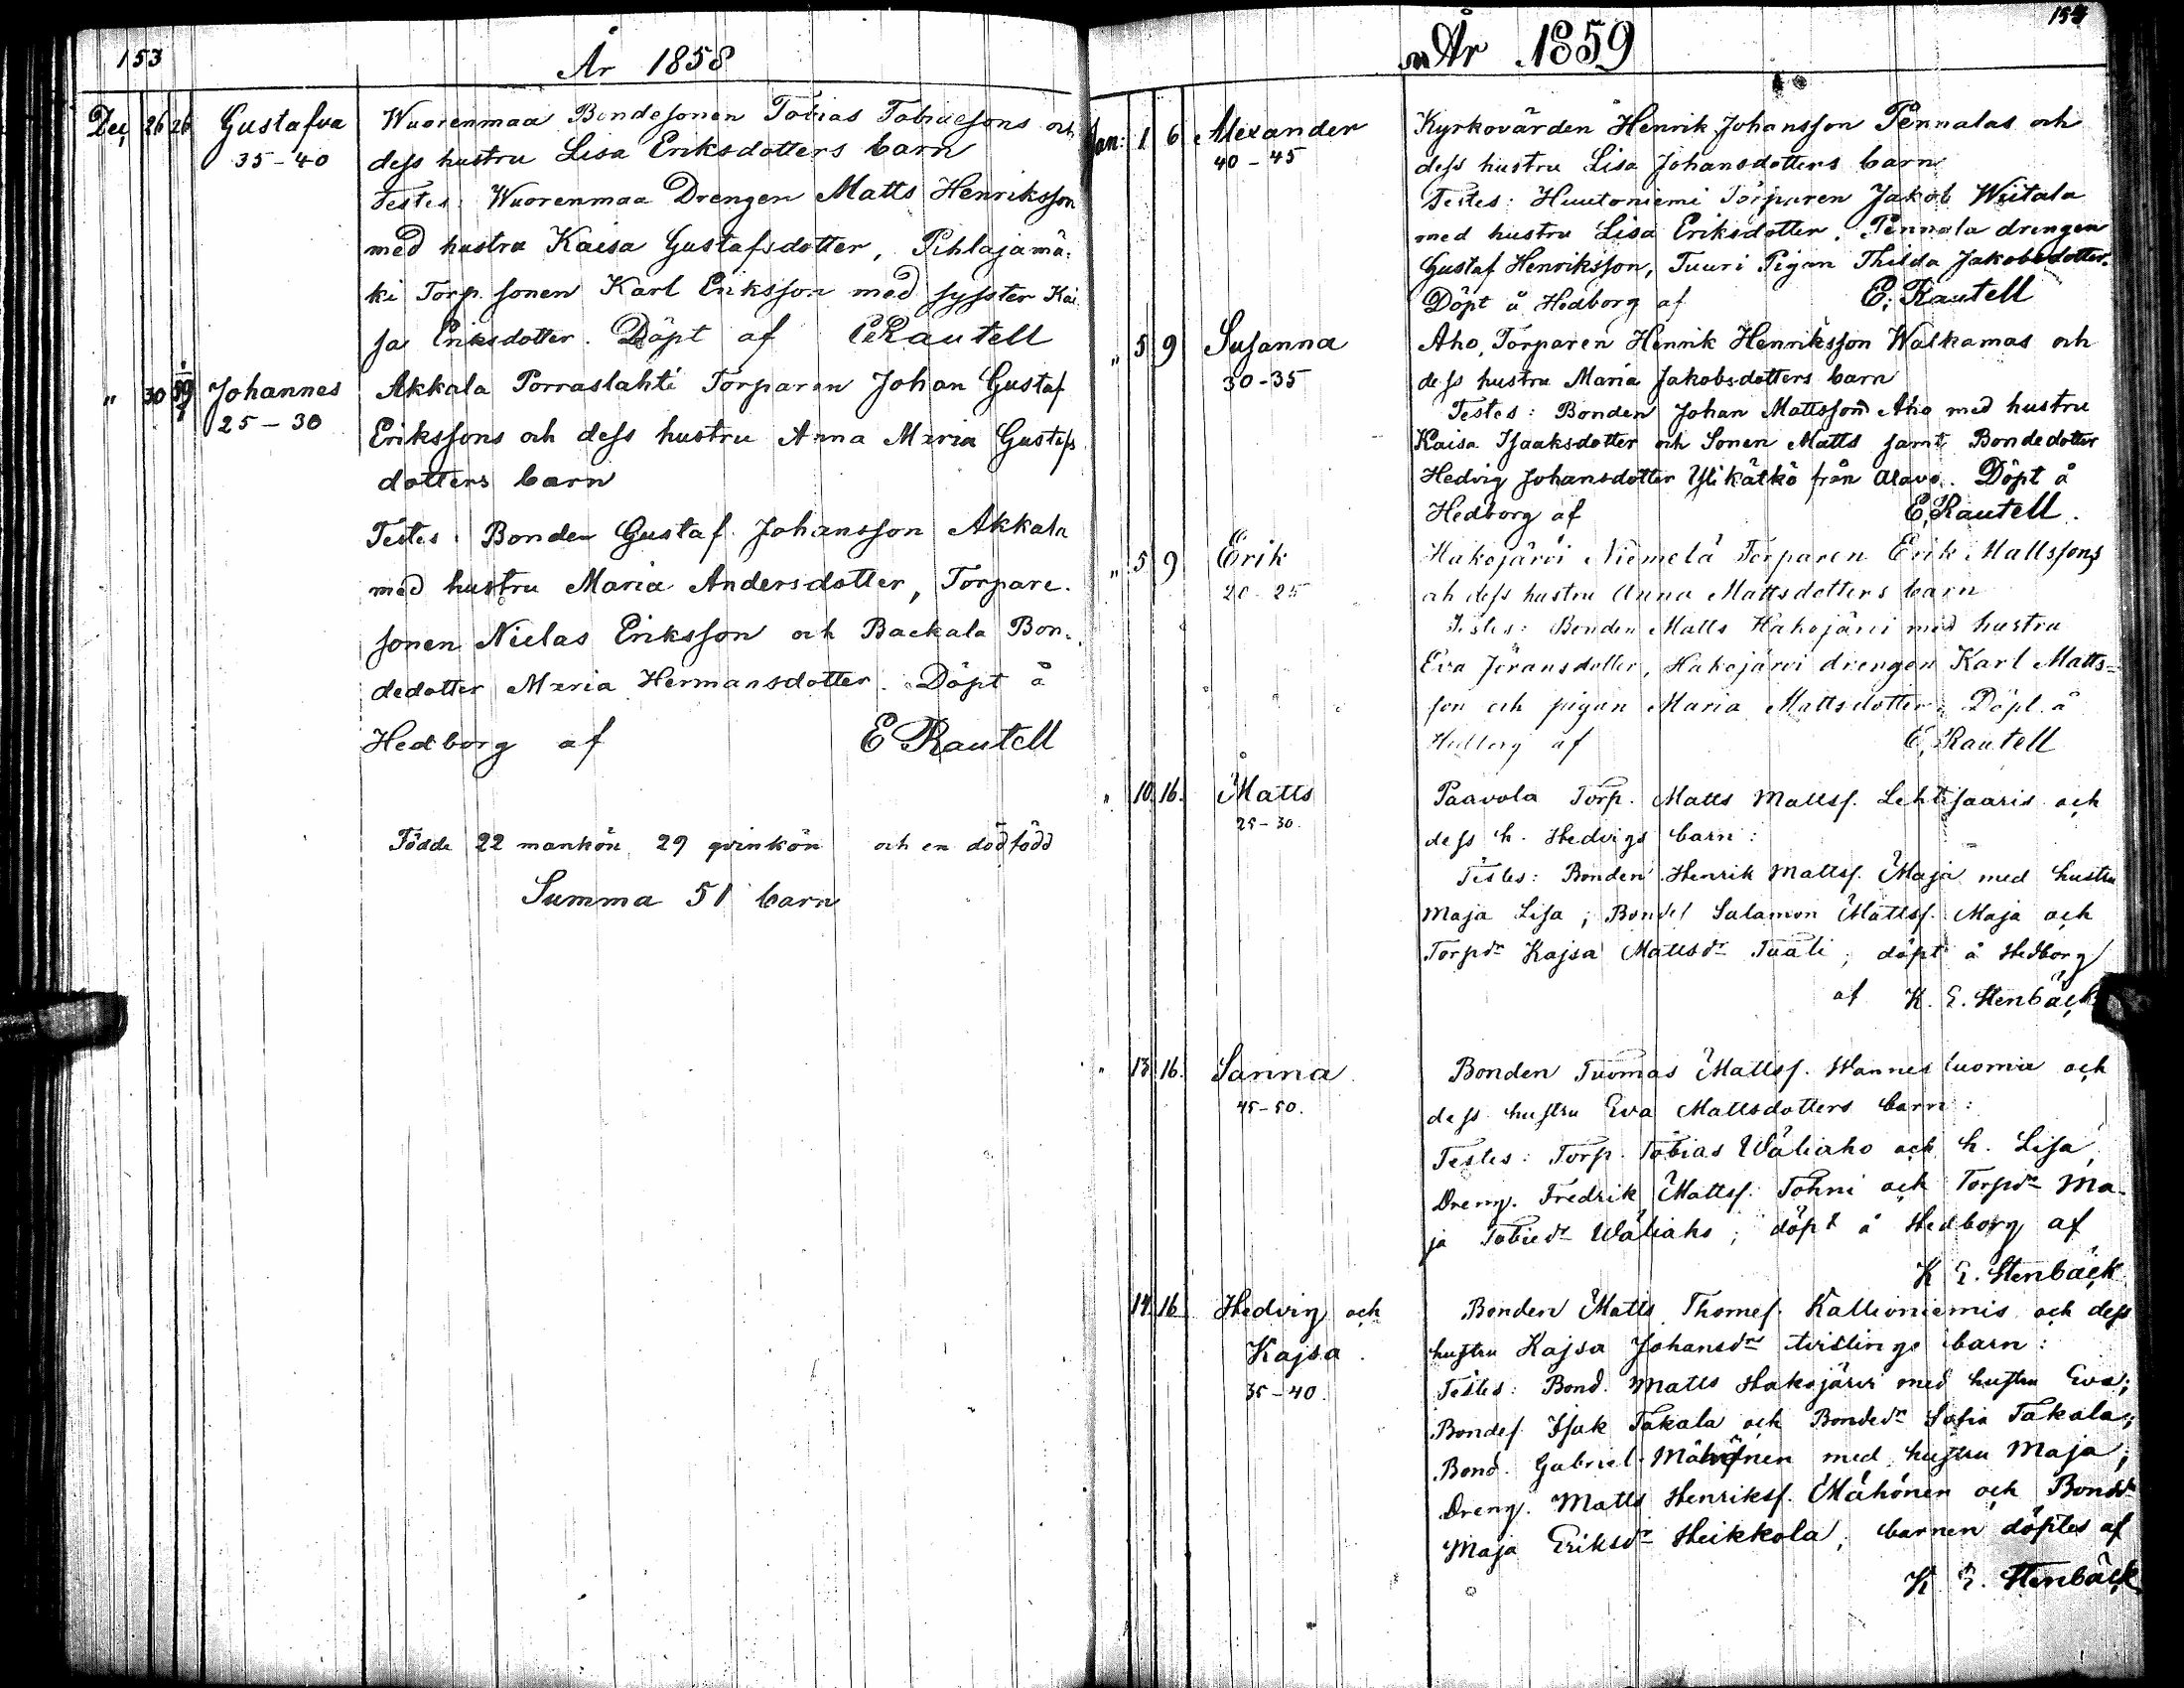 153
År 1858
Dec 26 26 Gustafva Wuorenmaa Bondesonen Tobias Tobiaesons och
35-40 dess hustru Lisa Eriksdotters barn
Testes: Wuorenmaa Drengen Matts Henriksson
med hustru Kaisa Gustafsdotter, Pihlajamä-
ki Torp. sonen Karl Eriksson med syster Kai
sa Eriksdotter. Döpt af E Rautell
" 30 Johannes Akkala Porraslahti Torparen Johan Gustaf
25-30 Erikssons och dess hustru Anna Maria Gustafs
dotters barn
Testes: Bonden Gustaf Johansson Akkala
med hustru Maria Andersdotter, Torpare-
sonen Niclas Eriksson och Backala Bon-
dedotter Maria Hermansdotter. Döpt å
Hedborg af E Rautell
Födde 22 mankön 29 qvinkön och en dödfödd
Summa 51 barn
154
År 1859
Jan: 1 6 Alexander Kyrkovärden Henrik Johansson Pennalas och
40-45 dess hustru Lisa Johansdotters barn
Testes: Huutoniemi Torparen Jakob Wiitala
med hustru Lisa Eriksdotter, Pennala drengen
Gustaf Henriksson, Tuuri Pigan Thilda Jakobsdotter.
Döpt å Hedborg af E. Rautell
" 5 9 Susanna Aho, Torparen Henrik Henriksson Walkamas och
30-35 dess hustru Maria Jakobsdotters barn
Testes: Bonden Johan Mattsson Aho med hustru
Kaisa Isaaksdotter och Sonen Matts samt Bondedotter
Hedvig Johansdotter Ylikätkö från Alavo. Döpt å
Hedborg af E. Rautell.
" 5 9 Erik Hakojärvi Niemelä Torparen Erik Mattssons
20-25 och dess hustru Anna Mattsdotters barn
Testes: Bonden Matts Hakojärvi med hustru
Eva Jöransdotter, Hakojärvi drengen Karl Matts-
son och pigan Maria Mattsdotter. Döpt å
Hedborg af E. Rautell
" 10. 16. Matts Paavola Torp. Matts Mattss. Lehtisaaris och
25-30. dess h. Hedvigs barn:
Testes: Bonden Henrik Mattss. Maja med hustru
Maja Lisa; Bondes Salamon Mattss. Maja och
Torpdr Kajsa Mattsdr Tuali; döpt å Hedborg
af K. E. Stenbäck
" 13. 16. Sanna Bonden Tuomas Mattss. Hannesluoma och
45-50. dess hustru Eva Mattsdotters barn:
Testes: Torp. Tobias Wäliaho och h. Lisa,
Dreng. Fredrik Mattss. Tohni och Torpdr Ma-
ja Tobiedr Wäliaho; döpt å Hedborg af
K E. Stenbäck
14. 16 Hedvig och Bonden Matts Thomess. Kallioniemis och dess
Kajsa. hustru Kajsa Johansdrs tvillinge barn:
35-40. Testes: Bond. Matts Hakojärvi med hustru Eva;
Bondes. Isak Takala och Bondedr Sofia Takala;
Bond. Gabriel Mähönen med hustru Maja;
Dreng. Matts Henrikss. Mähönen och Bondr
Maja Eriksdr Heikkola; barnen döptes af
K. E. Stenbäck